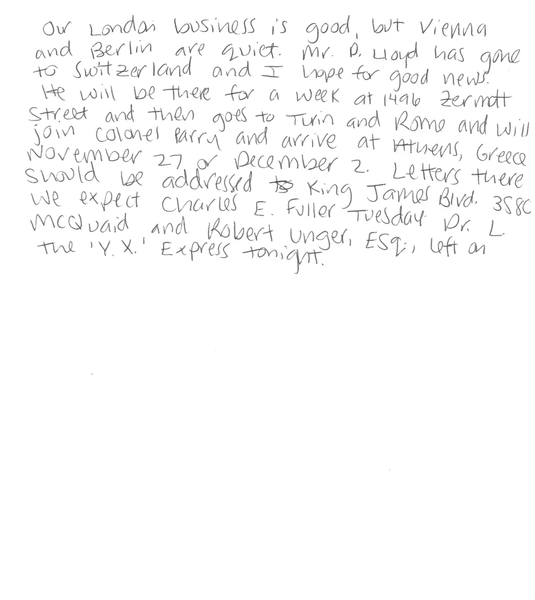 Our London business is good, but Vienna
and Berlin are quiet. Mr. D. Lloyd has gone
to Switzerland and I hope for good news.
He will be there for a week at 1496 Zermott
Street and then goes to Turin and Rome and will
join Colonel Parry and arrive at Athens, Greece
November 27 or December 2. Letters there
should be addressed to King James Blvd. 3580
We expect Charles E. Fuller Tuesday. Dr. L.
McQuaid and Robert Unger, Esq., left on
the 'Y.X.' Express tonight.